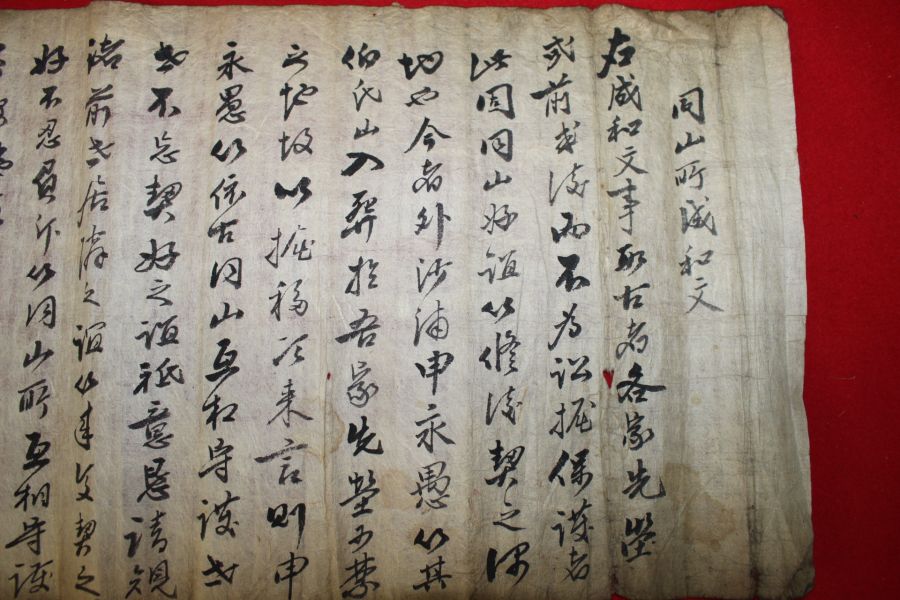 同山所成和文
右成和文事古者各家先塋
或前或後而不為訟掘保護者
此固同山好誼以脩後契之
也今者外沙浦申永愚以其
伯氏山入葬於吾家先塋可禁
之地故以掘移次来言則申
永愚以依古同山互相守護世
世不忘契好之誼意懇請
諸前世居隣之誼以契之
好不忍以同山所互相守護